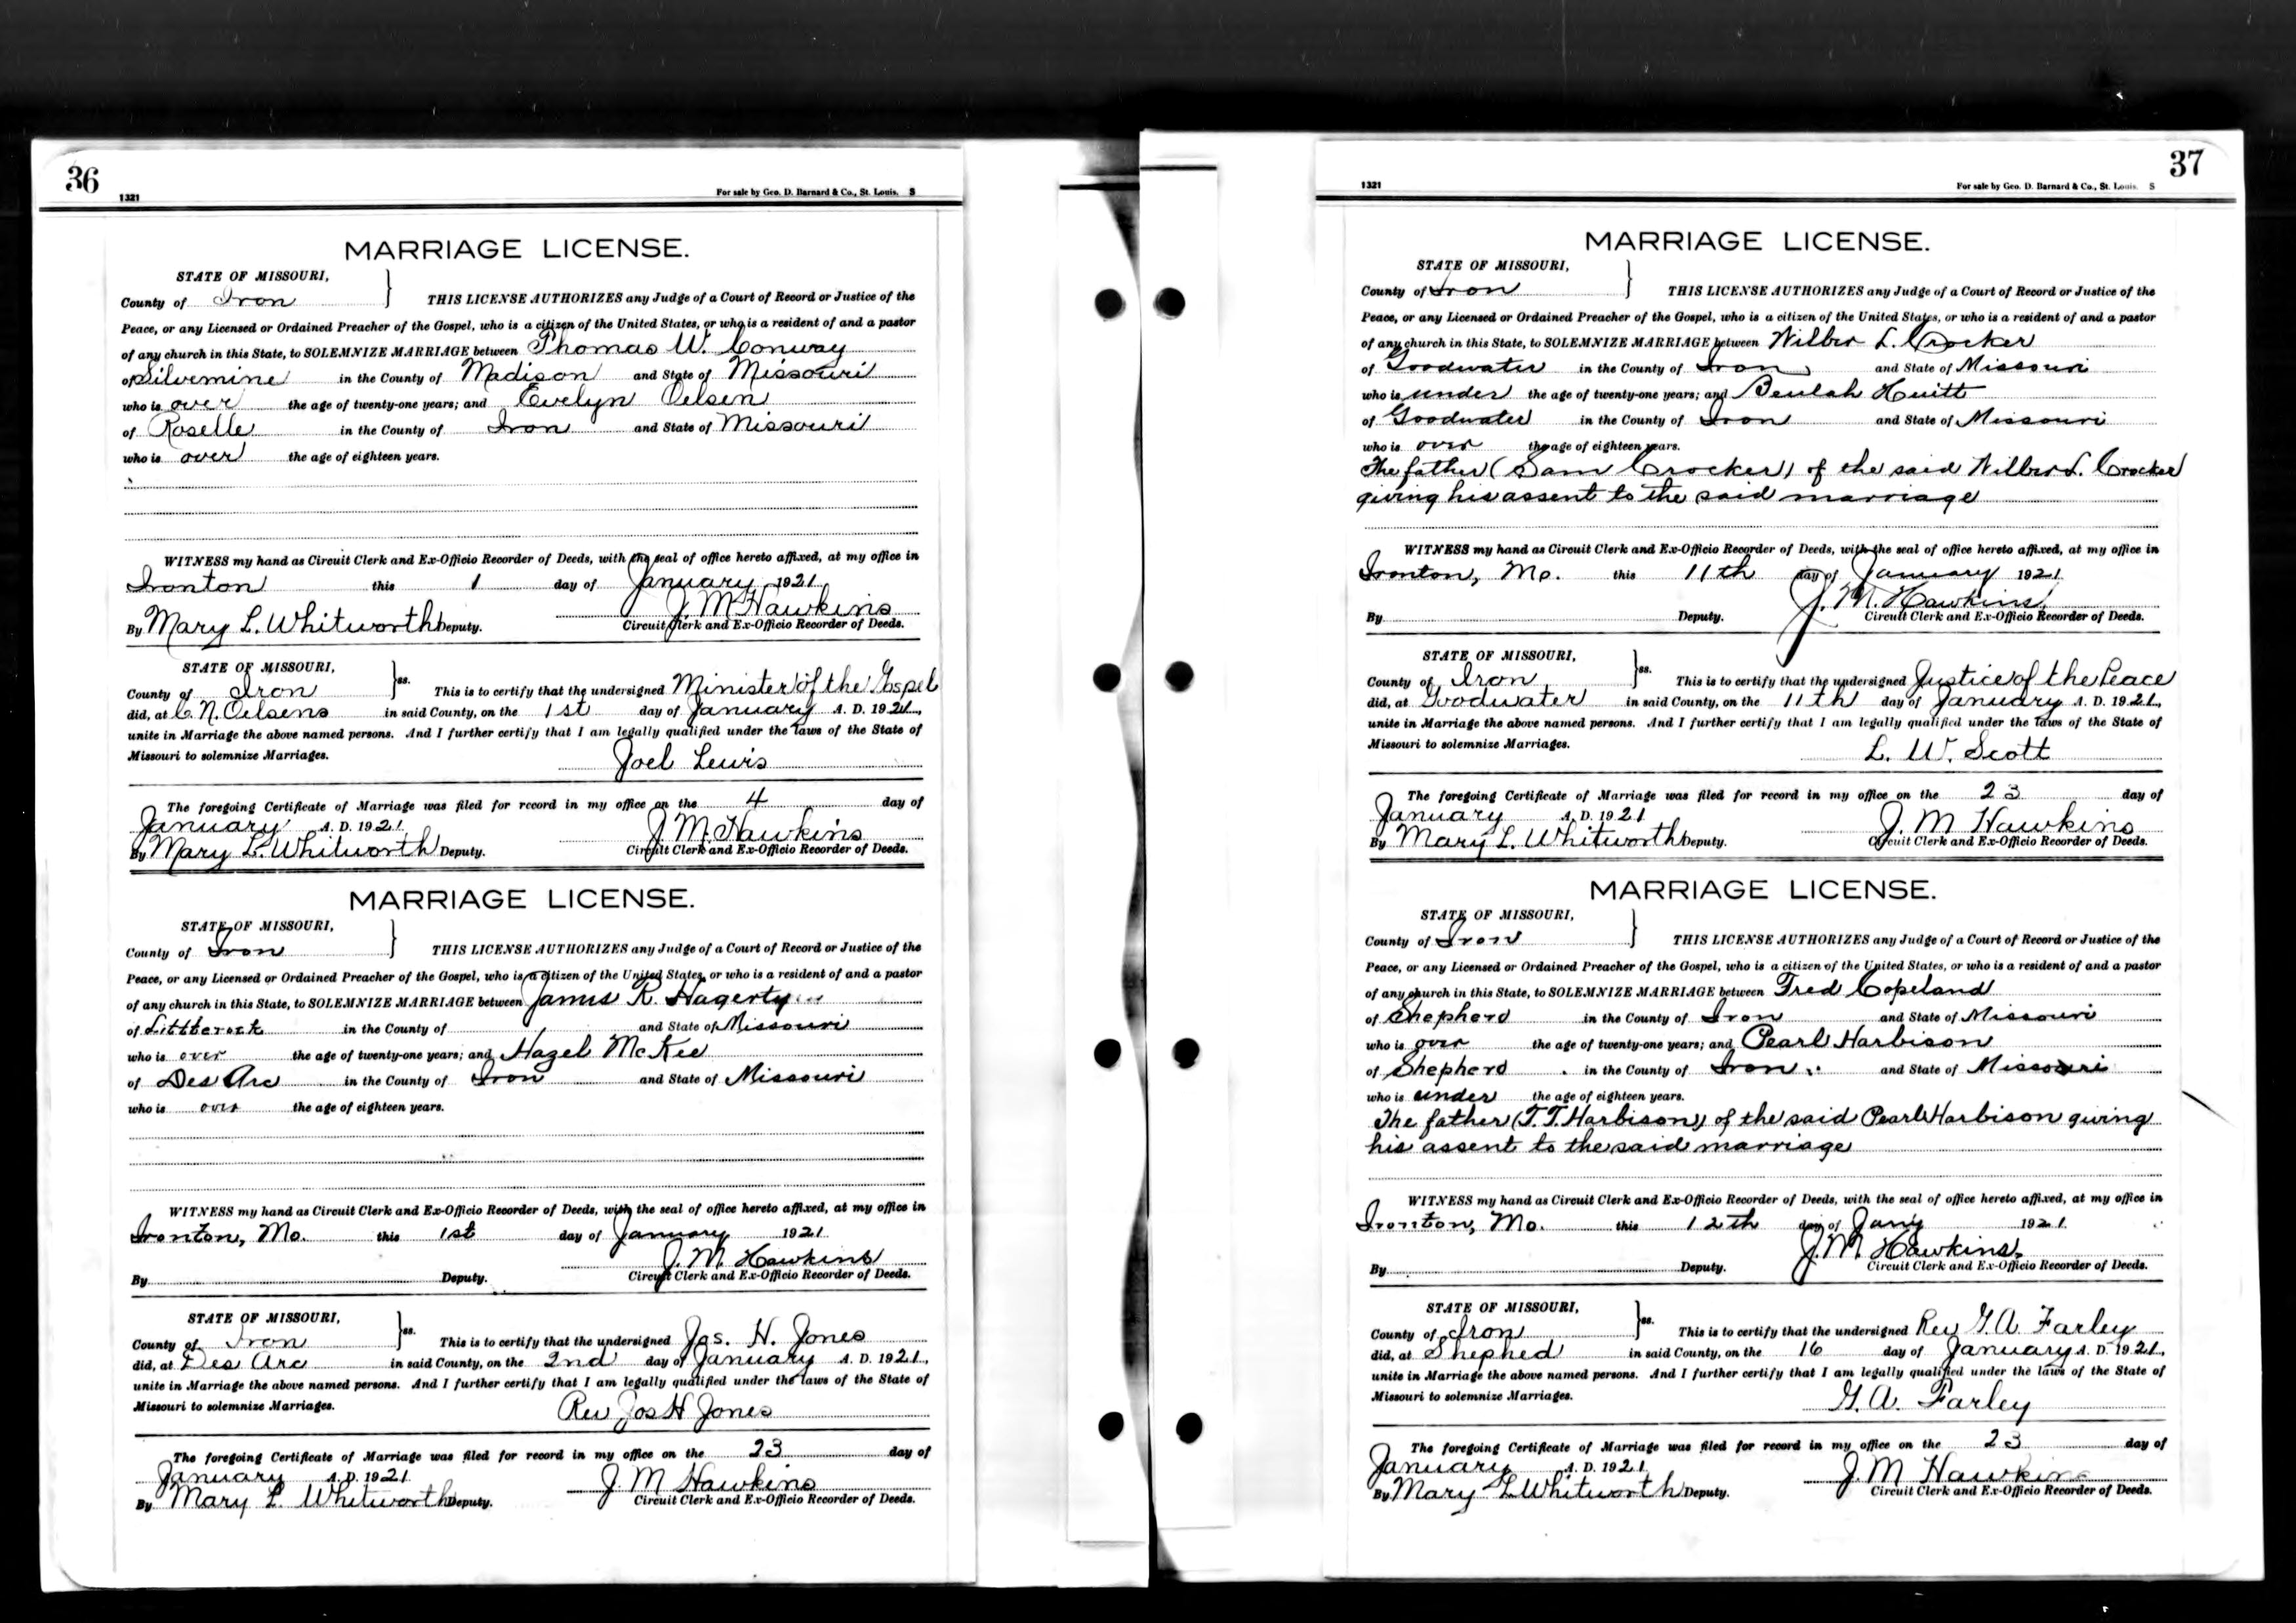 36
1321
For sale by Geo. D. Barnard & Co., St. Louis. S
MARRIAGE LICENSE.
STATE OF MISSOURI,
County of Iron } THIS LICENSE AUTHORIZES any Judge of a Court of Record or Justice of the
Peace, or any Licensed or Ordained Preacher of the Gospel, who is a citizen of the United States, or who is a resident of and a pastor
of any church in this State, to SOLEMNIZE MARRIAGE between Thomas W. Conway
of Silvermine in the County of Madison and State of Missouri
who is over the age of twenty-one years; and Evelyn Oelsen
of Roselle in the County of Iron and State of Missouri
who is over the age of eighteen years.
WITNESS my hand as Circuit Clerk and Ex-Officio Recorder of Deeds, with the seal of office hereto affixed, at my office in
Ironton this 1 day of January 1921
J. M Hawkins
By Mary L. Whitworth Deputy. Circuit Clerk and Ex-Officio Recorder of Deeds.
STATE OF MISSOURI,
County of Iron }ss. This is to certify that the undersigned Minister of the Gospel
did, at C. N. Oelsens in said County, on the 1st day of January A. D. 1921,
unite in Marriage the above named persons. And I further certify that I am legally qualified under the laws of the State of
Missouri to solemnize Marriages.
Joel Lewis
The foregoing Certificate of Marriage was filed for record in my office on the 4 day of
January A. D. 1921
J M. Hawkins
By Mary L. Whitworth Deputy. Circuit Clerk and Ex-Officio Recorder of Deeds.
MARRIAGE LICENSE.
STATE OF MISSOURI,
County of Iron } THIS LICENSE AUTHORIZES any Judge of a Court of Record or Justice of the
Peace, or any Licensed or Ordained Preacher of the Gospel, who is a citizen of the United States, or who is a resident of and a pastor
of any church in this State, to SOLEMNIZE MARRIAGE between James R. Hagerty
of Litterock in the County of and State of Missouri
who is over the age of twenty-one years; and Hazel McKee
of Des Arc in the County of Iron and State of Missouri
who is over the age of eighteen years.
WITNESS my hand as Circuit Clerk and Ex-Officio Recorder of Deeds, with the seal of office hereto affixed, at my office in
Ironton, Mo. this 1st day of January 1921
J. M. Hawkins
By Deputy. Circuit Clerk and Ex-Officio Recorder of Deeds.
STATE OF MISSOURI,
County of Iron }ss. This is to certify that the undersigned Jas. H. Jones
did, at Des Arc in said County, on the 2nd day of January A. D. 1921,
unite in Marriage the above named persons. And I further certify that I am legally qualified under the laws of the State of
Missouri to solemnize Marriages.
Rev Jos H Jones
The foregoing Certificate of Marriage was filed for record in my office on the 23 day of
January A. D. 1921
J. M Hawkins
By Mary L. Whitworth Deputy. Circuit Clerk and Ex-Officio Recorder of Deeds.
37
1321
For sale by Geo. D. Barnard & Co., St. Louis. S
MARRIAGE LICENSE.
STATE OF MISSOURI,
County of Iron } THIS LICENSE AUTHORIZES any Judge of a Court of Record or Justice of the
Peace, or any Licensed or Ordained Preacher of the Gospel, who is a citizen of the United States, or who is a resident of and a pastor
of any church in this State, to SOLEMNIZE MARRIAGE between Wilber L. Crocker
of Goodwater in the County of Iron and State of Missouri
who is under the age of twenty-one years; and Beulah Huitt
of Goodwater in the County of Iron and State of Missouri
who is over the age of eighteen years.
The father (Sam Crocker) of the said Wilber L. Crocker
giving his assent to the said marriage
WITNESS my hand as Circuit Clerk and Ex-Officio Recorder of Deeds, with the seal of office hereto affixed, at my office in
Ironton, Mo. this 11th day of January 1921
J. M. Hawkins,
By Deputy. Circuit Clerk and Ex-Officio Recorder of Deeds.
STATE OF MISSOURI,
County of Iron }ss. This is to certify that the undersigned Justice of the Peace
did, at Goodwater in said County, on the 11th day of January A. D. 1921,
unite in Marriage the above named persons. And I further certify that I am legally qualified under the laws of the State of
Missouri to solemnize Marriages.
L. W. Scott
The foregoing Certificate of Marriage was filed for record in my office on the 23 day of
January A. D. 1921
J. M Hawkins
By Mary L. Whitworth Deputy. Circuit Clerk and Ex-Officio Recorder of Deeds.
MARRIAGE LICENSE.
STATE OF MISSOURI,
County of Iron } THIS LICENSE AUTHORIZES any Judge of a Court of Record or Justice of the
Peace, or any Licensed or Ordained Preacher of the Gospel, who is a citizen of the United States, or who is a resident of and a pastor
of any church in this State, to SOLEMNIZE MARRIAGE between Fred Copeland
of Shepherd in the County of Iron and State of Missouri
who is over the age of twenty-one years; and Pearl Harbison
of Shepherd in the County of Iron and State of Missouri
who is under the age of eighteen years.
The father (T. T. Harbison) of the said Pearl Harbison giving
his assent to the said marriage
WITNESS my hand as Circuit Clerk and Ex-Officio Recorder of Deeds, with the seal of office hereto affixed, at my office in
Ironton, Mo. this 12th day of Jany 1921
J. M Hawkins,
By Deputy. Circuit Clerk and Ex-Officio Recorder of Deeds.
STATE OF MISSOURI,
County of Iron }ss. This is to certify that the undersigned Rev G. A. Farley
did, at Shephed in said County, on the 16 day of January A. D. 1921,
unite in Marriage the above named persons. And I further certify that I am legally qualified under the laws of the State of
Missouri to solemnize Marriages.
G. A. Farley
The foregoing Certificate of Marriage was filed for record in my office on the 23 day of
January A. D. 1921
J. M Hawkins
By Mary L Whitworth Deputy. Circuit Clerk and Ex-Officio Recorder of Deeds.